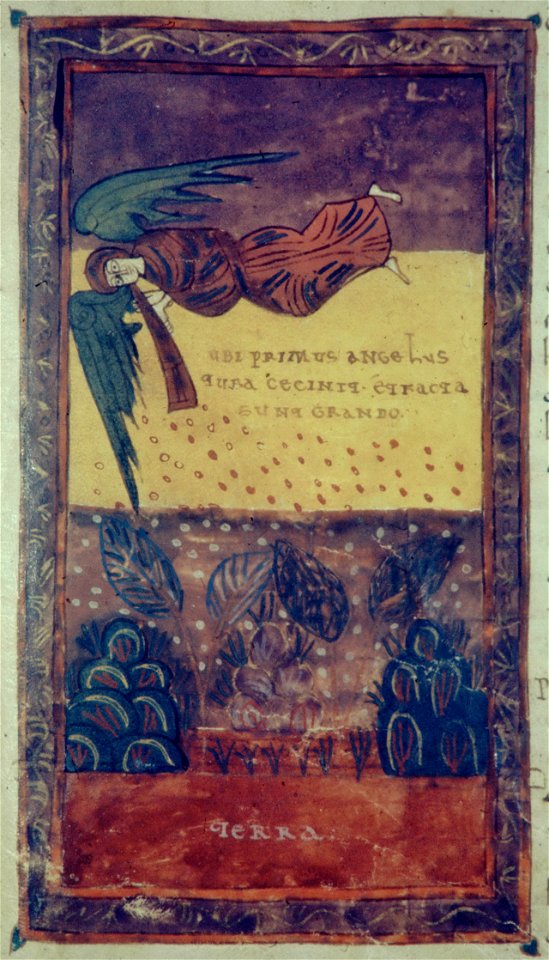 UBI PRIMUS ANGELUS
TUBA CECINIT· ET FACTA
SUNT GRANDO·
TERRA·